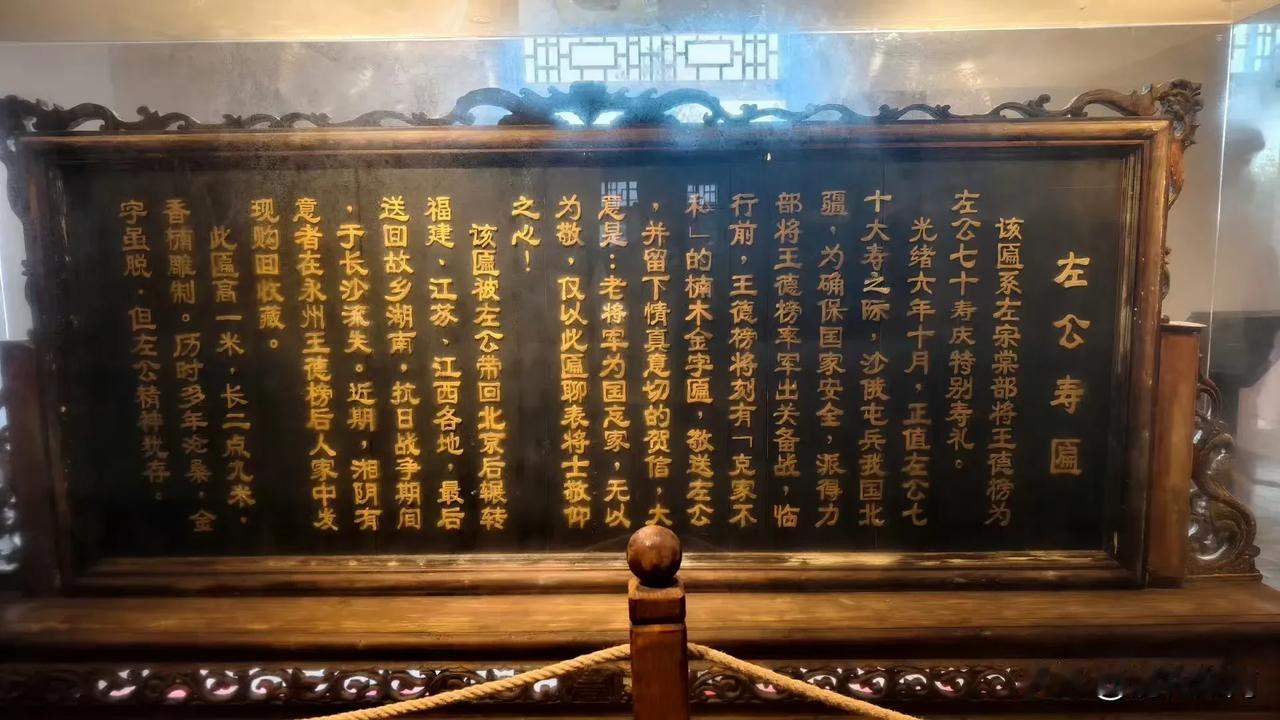 左公寿匾
该匾系左宗棠部将王德榜为
左公七十寿庆特别寿礼。
光绪六年十月，正值左公七
十大寿之际，沙俄屯兵我国北
疆，为确保国家安全，派得力
部将王德榜率军出关备战，临
行前，王德榜将刻有「克家不
私」的楠木金字匾，敬送左公
，并留下情真意切的贺信，大
意是：老将军为国忘家，无以
为敬，仅以此匾聊表将士敬仰
之心！
该匾被左公带回北京后辗转
福建、江苏、江西各地，最后
送回故乡湖南，抗日战争期间
，于长沙流失。近期，湘阴有
意者在永州王德榜后人家中发
现购回收藏。
此匾高一米，长二点九米，
香楠雕制。历时多年沧桑，金
字虽脱，但左公精神犹存。